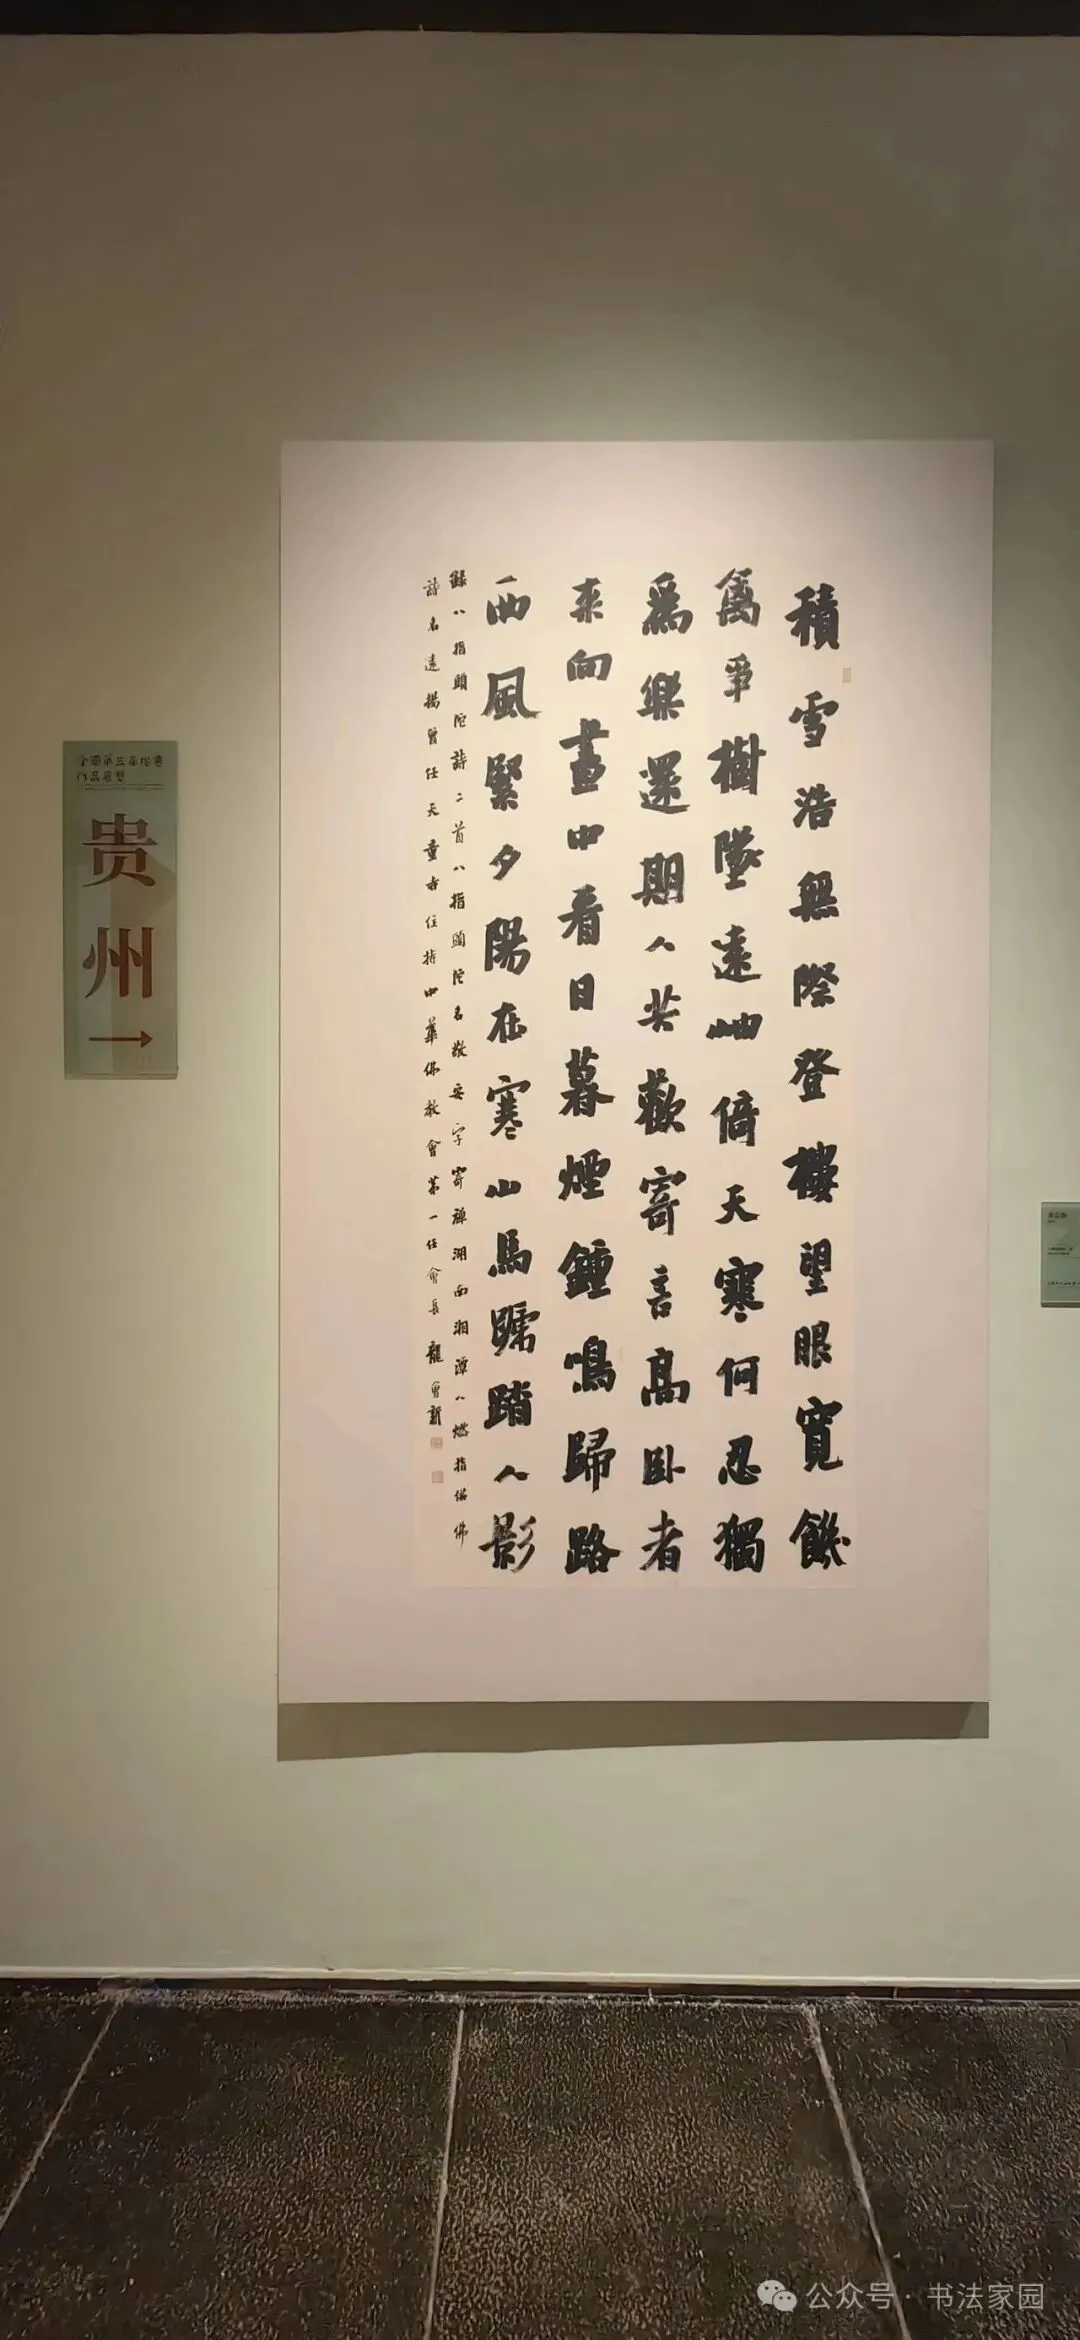 積雪浩無際登樓望眼寬饑
禽爭樹墜遠岫倚天寒何忍獨
為樂還期人共歡寄言高臥者
來向畫中看日暮煙鐘鳴歸路
西風緊夕陽在寒山馬蹄踏人影
錄八指頭陀詩二首八指頭陀名敬安字寄禪湖南湘潭人燃指供佛
詩名遠揚曾任天童寺住持中華佛教會第一任會長龍會新
全國第三屆楷書
作品展覽
贵州
→
公众号·书法家园